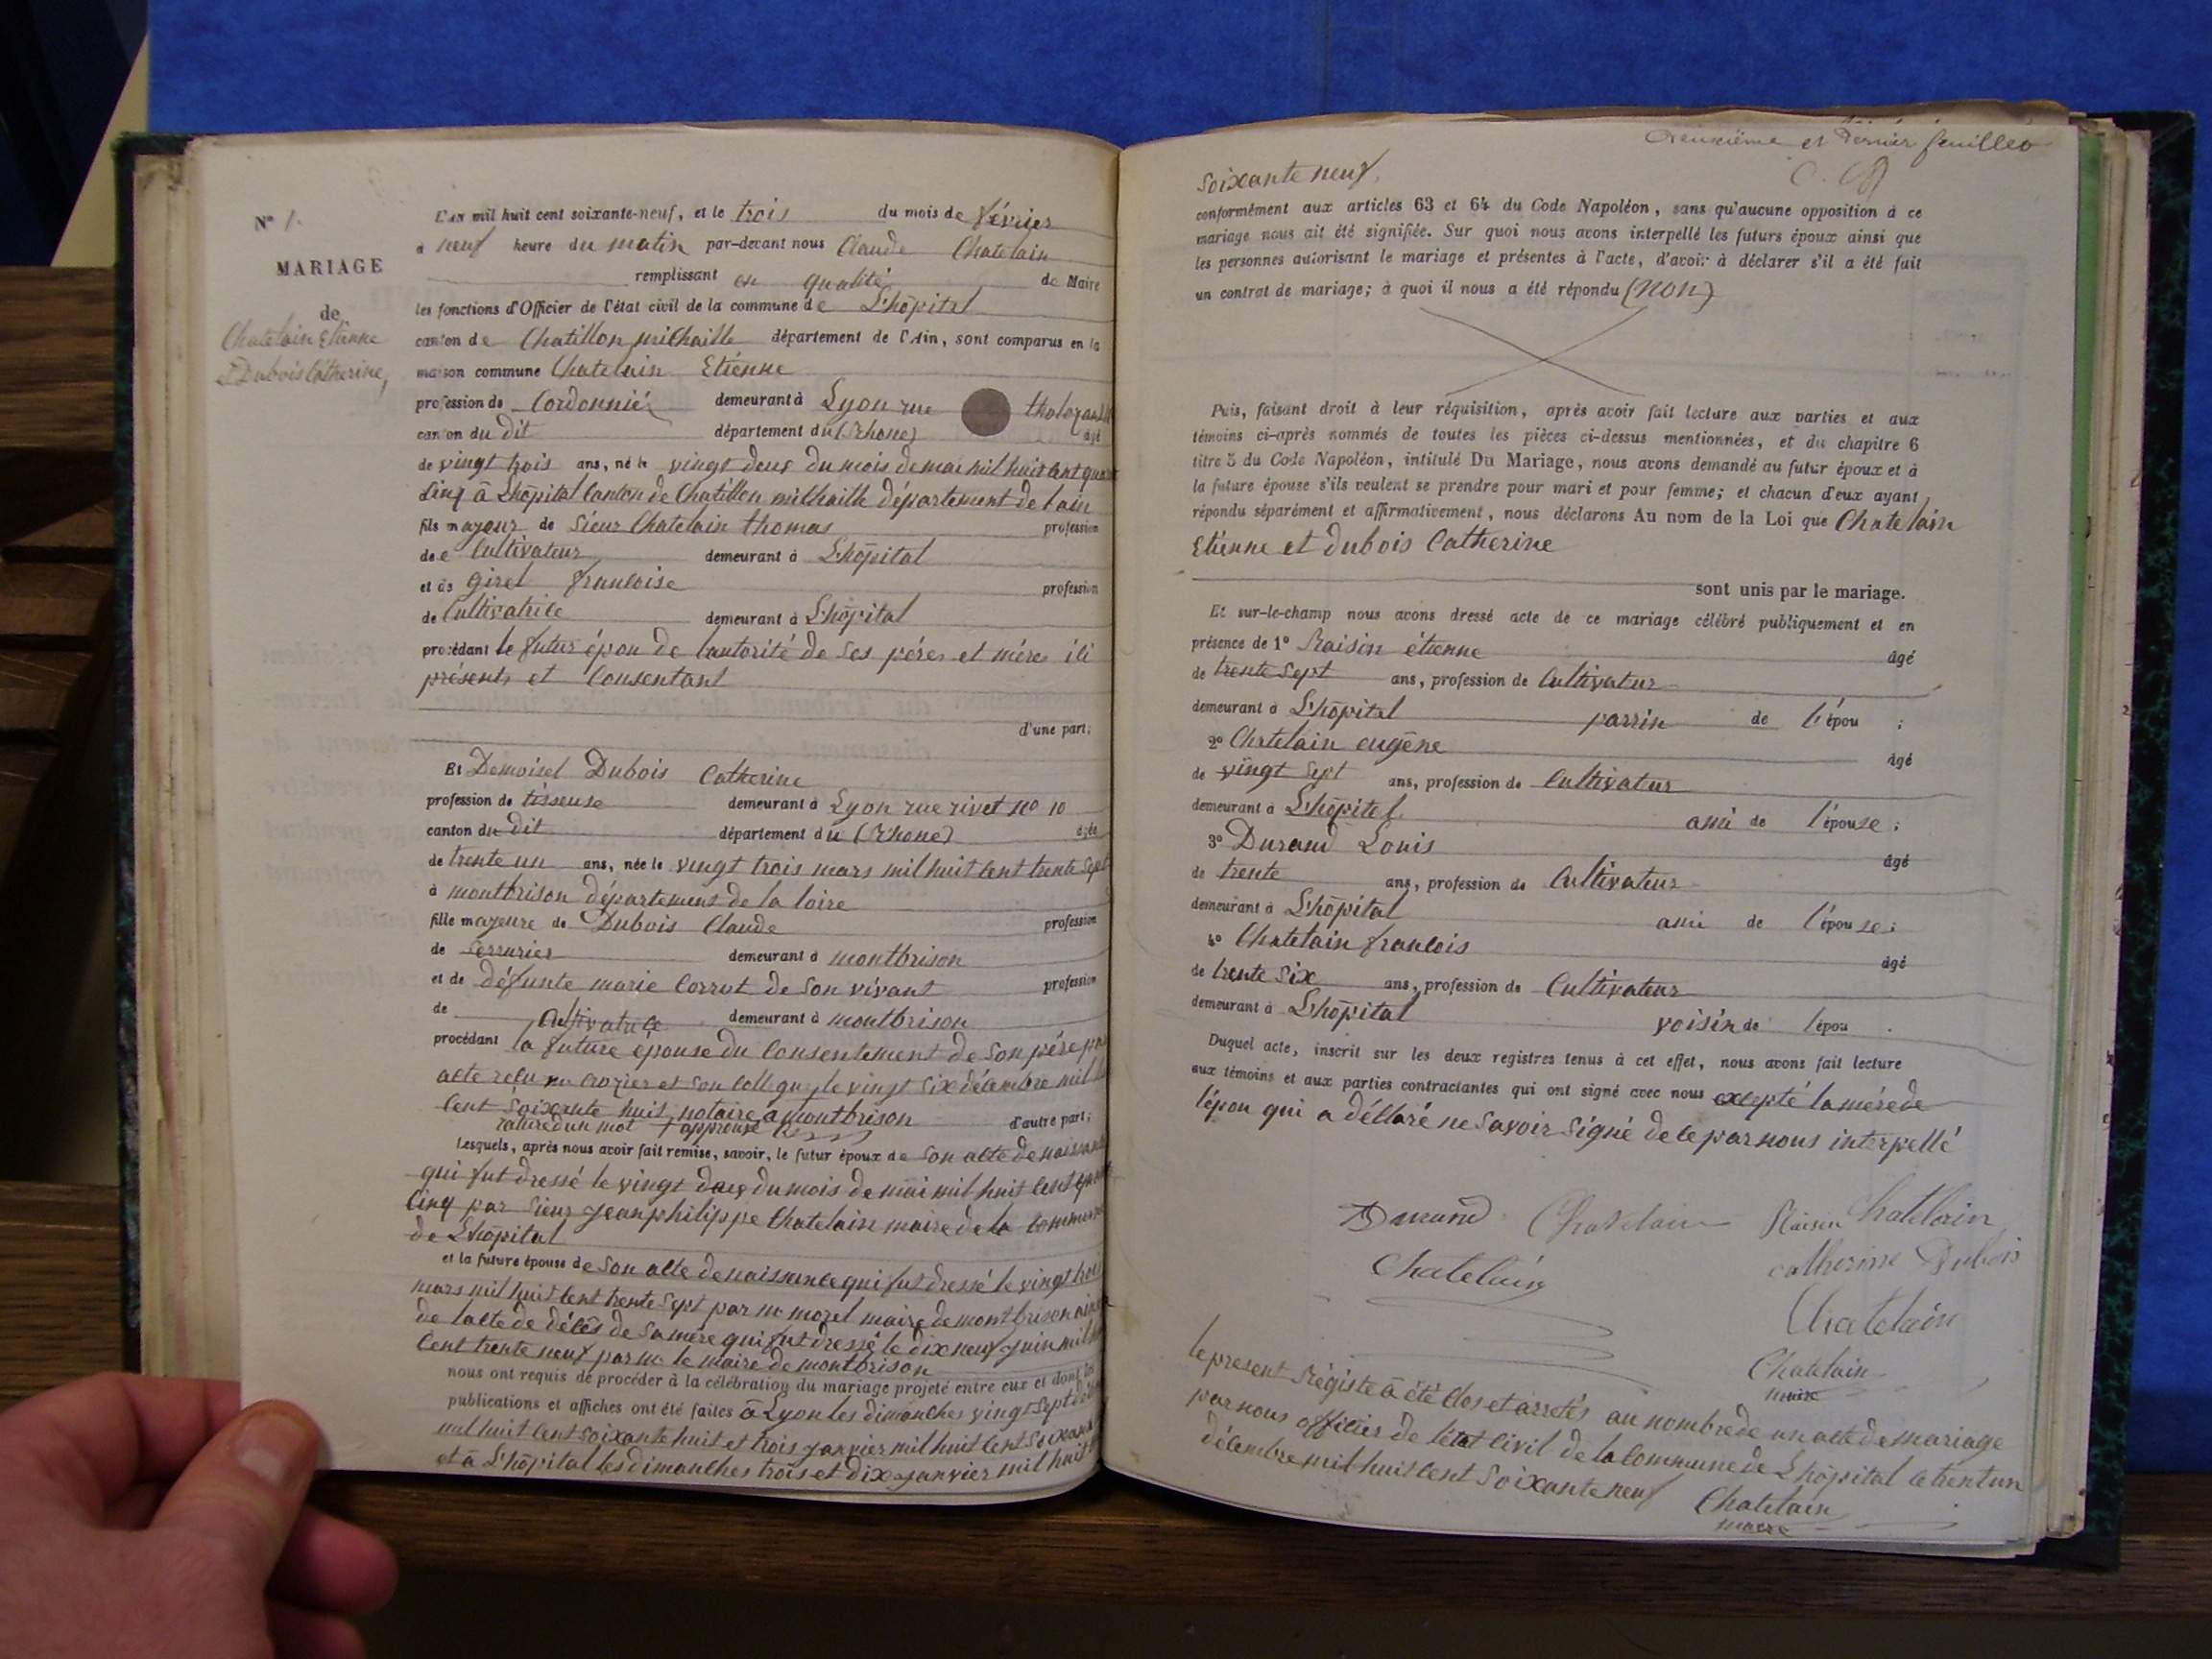 N° 1.
MARIAGE
de
Chatelain Etienne
et Dubois Catherine,
L'An mil huit cent soixante-neuf, et le trois du mois de février
a neuf heure du matin par-devant nous Claude Chatelain
remplissant en qualité de Maire
les fonctions d'Officier de l'état civil de la commune de L'hôpital
canton de Chatillon michaille département de l'Ain, sont comparus en la
maison commune Chatelain Etienne
profession de Cordonnier demeurant à Lyon rue tholozan
canton du dit département du (Rhone) âgé
de vingt trois ans, né le vingt deux du mois de mai mil huit cent quar
cinq à Lhôpital Canton de Chatillon michaille département de lain
fils majeur de Sieur Chatelain thomas profession
de Cultivateur demeurant à Lhôpital
et de Girel francoise profession
de Cultivatrice demeurant à Lhôpital
procédant le futur épou de lautorité de ses péres et méres ici
présents et Consentant
d'une part;
Et Demoisel Dubois Catherine
profession de tisseuse demeurant à Lyon rue rivet no 10
canton du dit département du (Rhone) âgée
de trente un ans, née le vingt trois mars mil huit cent trente sept
à montbrison département de la loire
fille majeure de Dubois Claude profession
de Serrurier demeurant à montbrison
et de défunte marie Corrot de son vivant profession
de Cultivatrice demeurant à montbrison
procédant la future épouse du Consentement de son pére par
acte recu me crozier et son collegue le vingt six décembre mil
cent soixante huit notaire a montbrison
rature dun mot approuvé d'autre part;
Lesquels, après nous avoir fait remise, savoir, le futur époux de son acte de naissance
qui fut dressé le vingt deux du mois de mai mil huit cent quar
cinq par sieur jean philippe Chatelain maire de la commune
de Lhôpital
et la future épouse de son acte de naissance qui fut dressé le vingt trois
mars mil huit cent trente sept par mr morel maire de montbrison ainsi
de lacte de décès de sa mére qui fut dressé le dix neuf juin mil
cent trente neuf par mr le maire de montbrison
nous ont requis de procéder à la célébration du mariage projeté entre eux et dont les
publications et affiches ont été faites à Lyon les dimanches vingt sept
mil huit cent soixante huit et trois janvier mil huit cent soixante
et à L'hôpital les dimanches trois et dix janvier mil huit
Deuxième et Dernier feuillet
soixante neuf,
conformément aux articles 63 et 64 du Code Napoléon, sans qu'aucune opposition à ce
mariage nous ait été signifiée. Sur quoi nous avons interpellé les futurs époux ainsi que
les personnes autorisant le mariage et présentes à l'acte, d'avoir à déclarer s'il a été fait
un contrat de mariage; à quoi il nous a été répondu (non)
Puis, faisant droit à leur réquisition, après avoir fait lecture aux parties et aux
témoins ci-après nommés de toutes les pièces ci-dessus mentionnées, et du chapitre 6
titre 5 du Code Napoléon, intitulé Du Mariage, nous avons demandé au futur époux et à
la future épouse s'ils veulent se prendre pour mari et pour femme; et chacun d'eux ayant
répondu séparément et affirmativement, nous déclarons Au nom de la Loi que Chatelain
Etienne et Dubois Catherine
sont unis par le mariage.
Et sur-le-champ nous avons dressé acte de ce mariage célébré publiquement et en
présence de 1° Raisin étienne âgé
de trente sept ans, profession de Cultivateur
demeurant à Lhôpital parrin de l'épou ;
2° Chatelain eugène âgé
de vingt sept ans, profession de Cultivateur
demeurant à Lhôpital ami de l'épouse ;
3° Durand Louis âgé
de trente ans, profession de Cultivateur
demeurant à Lhôpital ami de l'épouse ;
4° Chatelain francois âgé
de trente six ans, profession de Cultivateur
demeurant à Lhôpital voisin de lépou .
Duquel acte, inscrit sur les deux registres tenus à cet effet, nous avons fait lecture
aux témoins et aux parties contractantes qui ont signé avec nous excepté la mére de
lépou qui a déclaré ne savoir signé de ce par nous interpellé
Durand Chatelain Raisin Chatelain
Chatelain catherine Dubois
Chatelain
Chatelain
maire
le present régiste à été clos et arretés au nombre de un acte de mariage
par nous officier de létat Civil de la Commune de Lhôpital le trent un
décembre mil huit cent soixante neuf Chatelain
maire